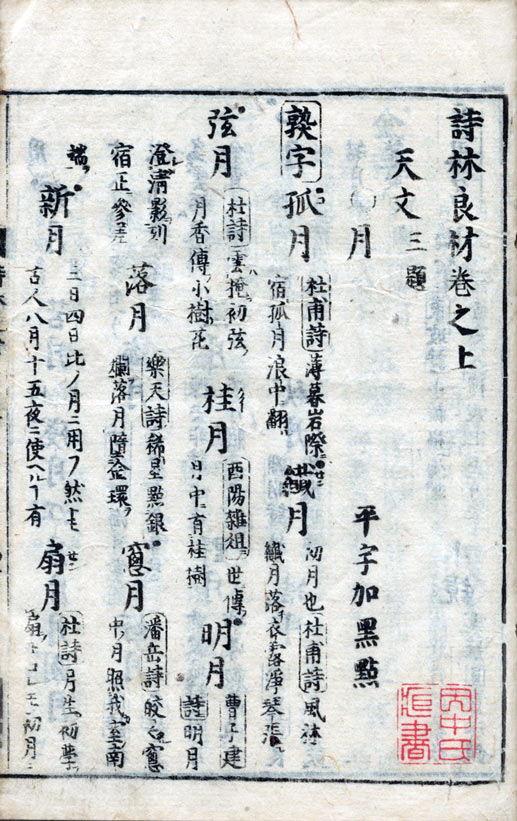 詩林良材卷之上
天文 三題
月 平字加黑點
熟字 孤月 杜甫詩薄暮岩際ニ
宿孤月浪中翻 纎月 初月也杜甫詩風林
纎月落衣露淨琴張
弦月 杜詩雲掩初弦
月香傳小樹花 桂月 酉陽雜俎世傳
月中有桂樹 明月 曹子建
詩明月
澄清影刻
宿正參差 落月 樂天詩稀星點銀
落月墮金環 窓月 潘岳詩皎々窓
中月照我室南
端 新月 三日四日比ノ月ニ用フ然モ
古人八月十五夜ニ使ヘルヿ有 扇月 杜詩月生初學
扇 初月